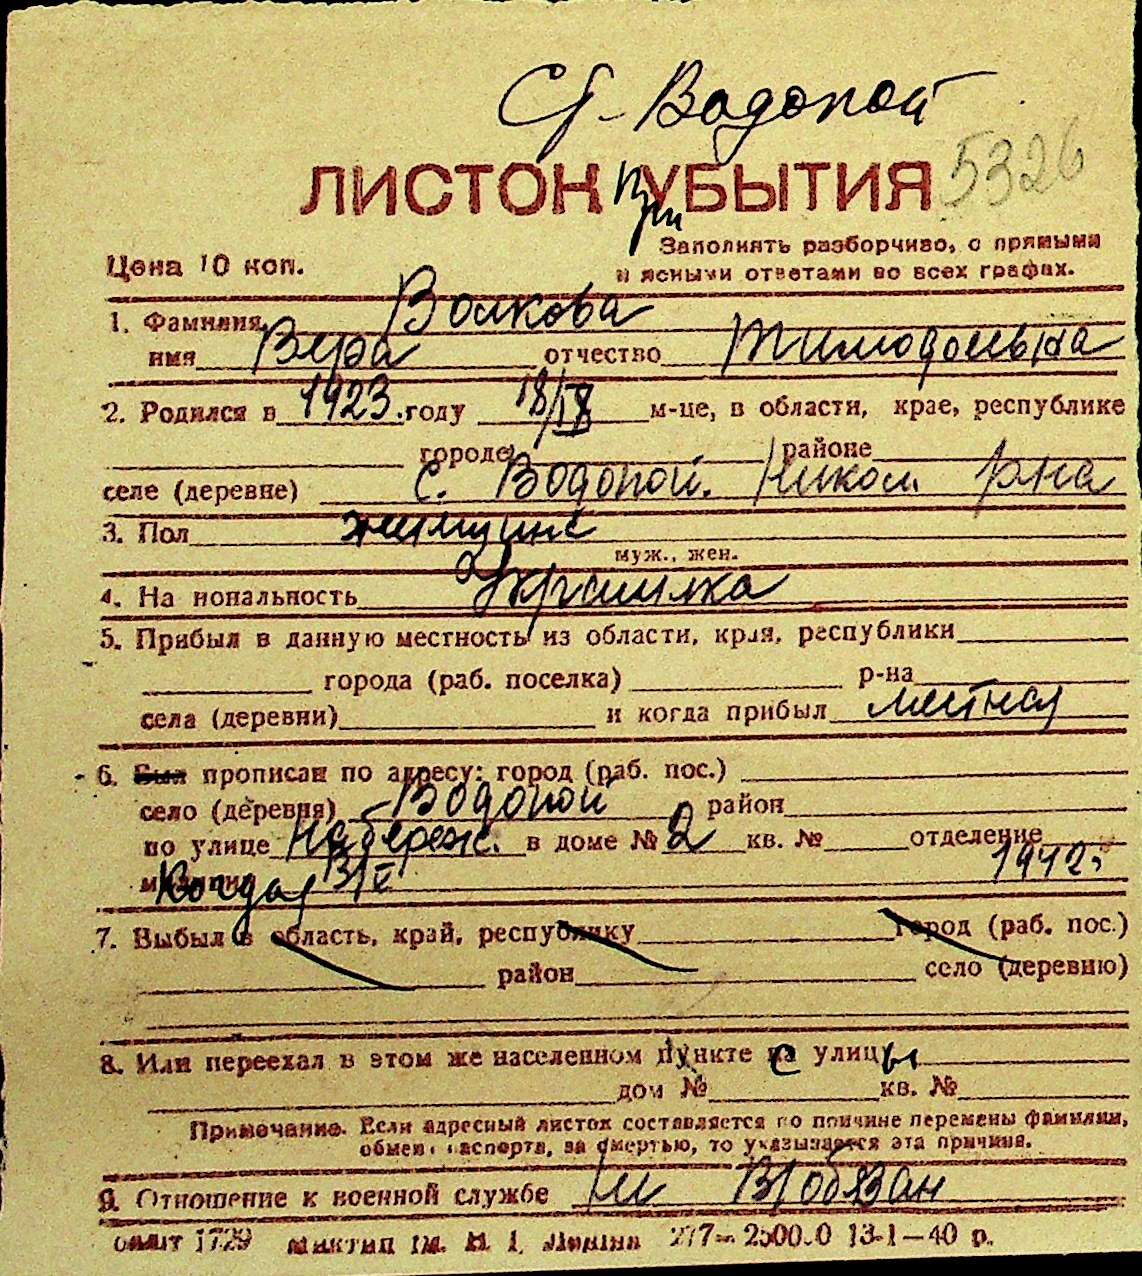 Ст. Водопой
ЛИСТОК при УБЫТИЯ 5326
Цена 10 коп.
Заполнять разборчиво, с прямыми
и ясными ответами во всех графах.
1. Фамилия Волкова
имя Вера отчество Тимофеевна
2. Родился в 1923 году 18/IX м-це, в области, крае, республике
городе районе
селе (деревне) с. Водопой. Никол. р-на
3. Пол женщине
муж., жен.
4. Национальность Украинка
5. Прибыл в данную местность из области, края, республики
города (раб. поселка) р-на
села (деревни) и когда прибыл местная
6. Был прописан по адресу: город (раб. пос.)
село (деревня) Водопой район
по улице Набереж. в доме № 2 кв. № отделение
милиции Когда 1942
7. Выбыл в область, край, республику город (раб. пос.)
район село (деревню)
8. Или переехал в этом же населенном пункте с улицы
дом № кв. №
Примечание. Если адресный листок составляется по причине перемены фамилии,
обмена паспорта, за смертью, то указывается эта причина.
9. Отношение к военной службе не в/обязан
1729 277— 13-1—40 р.